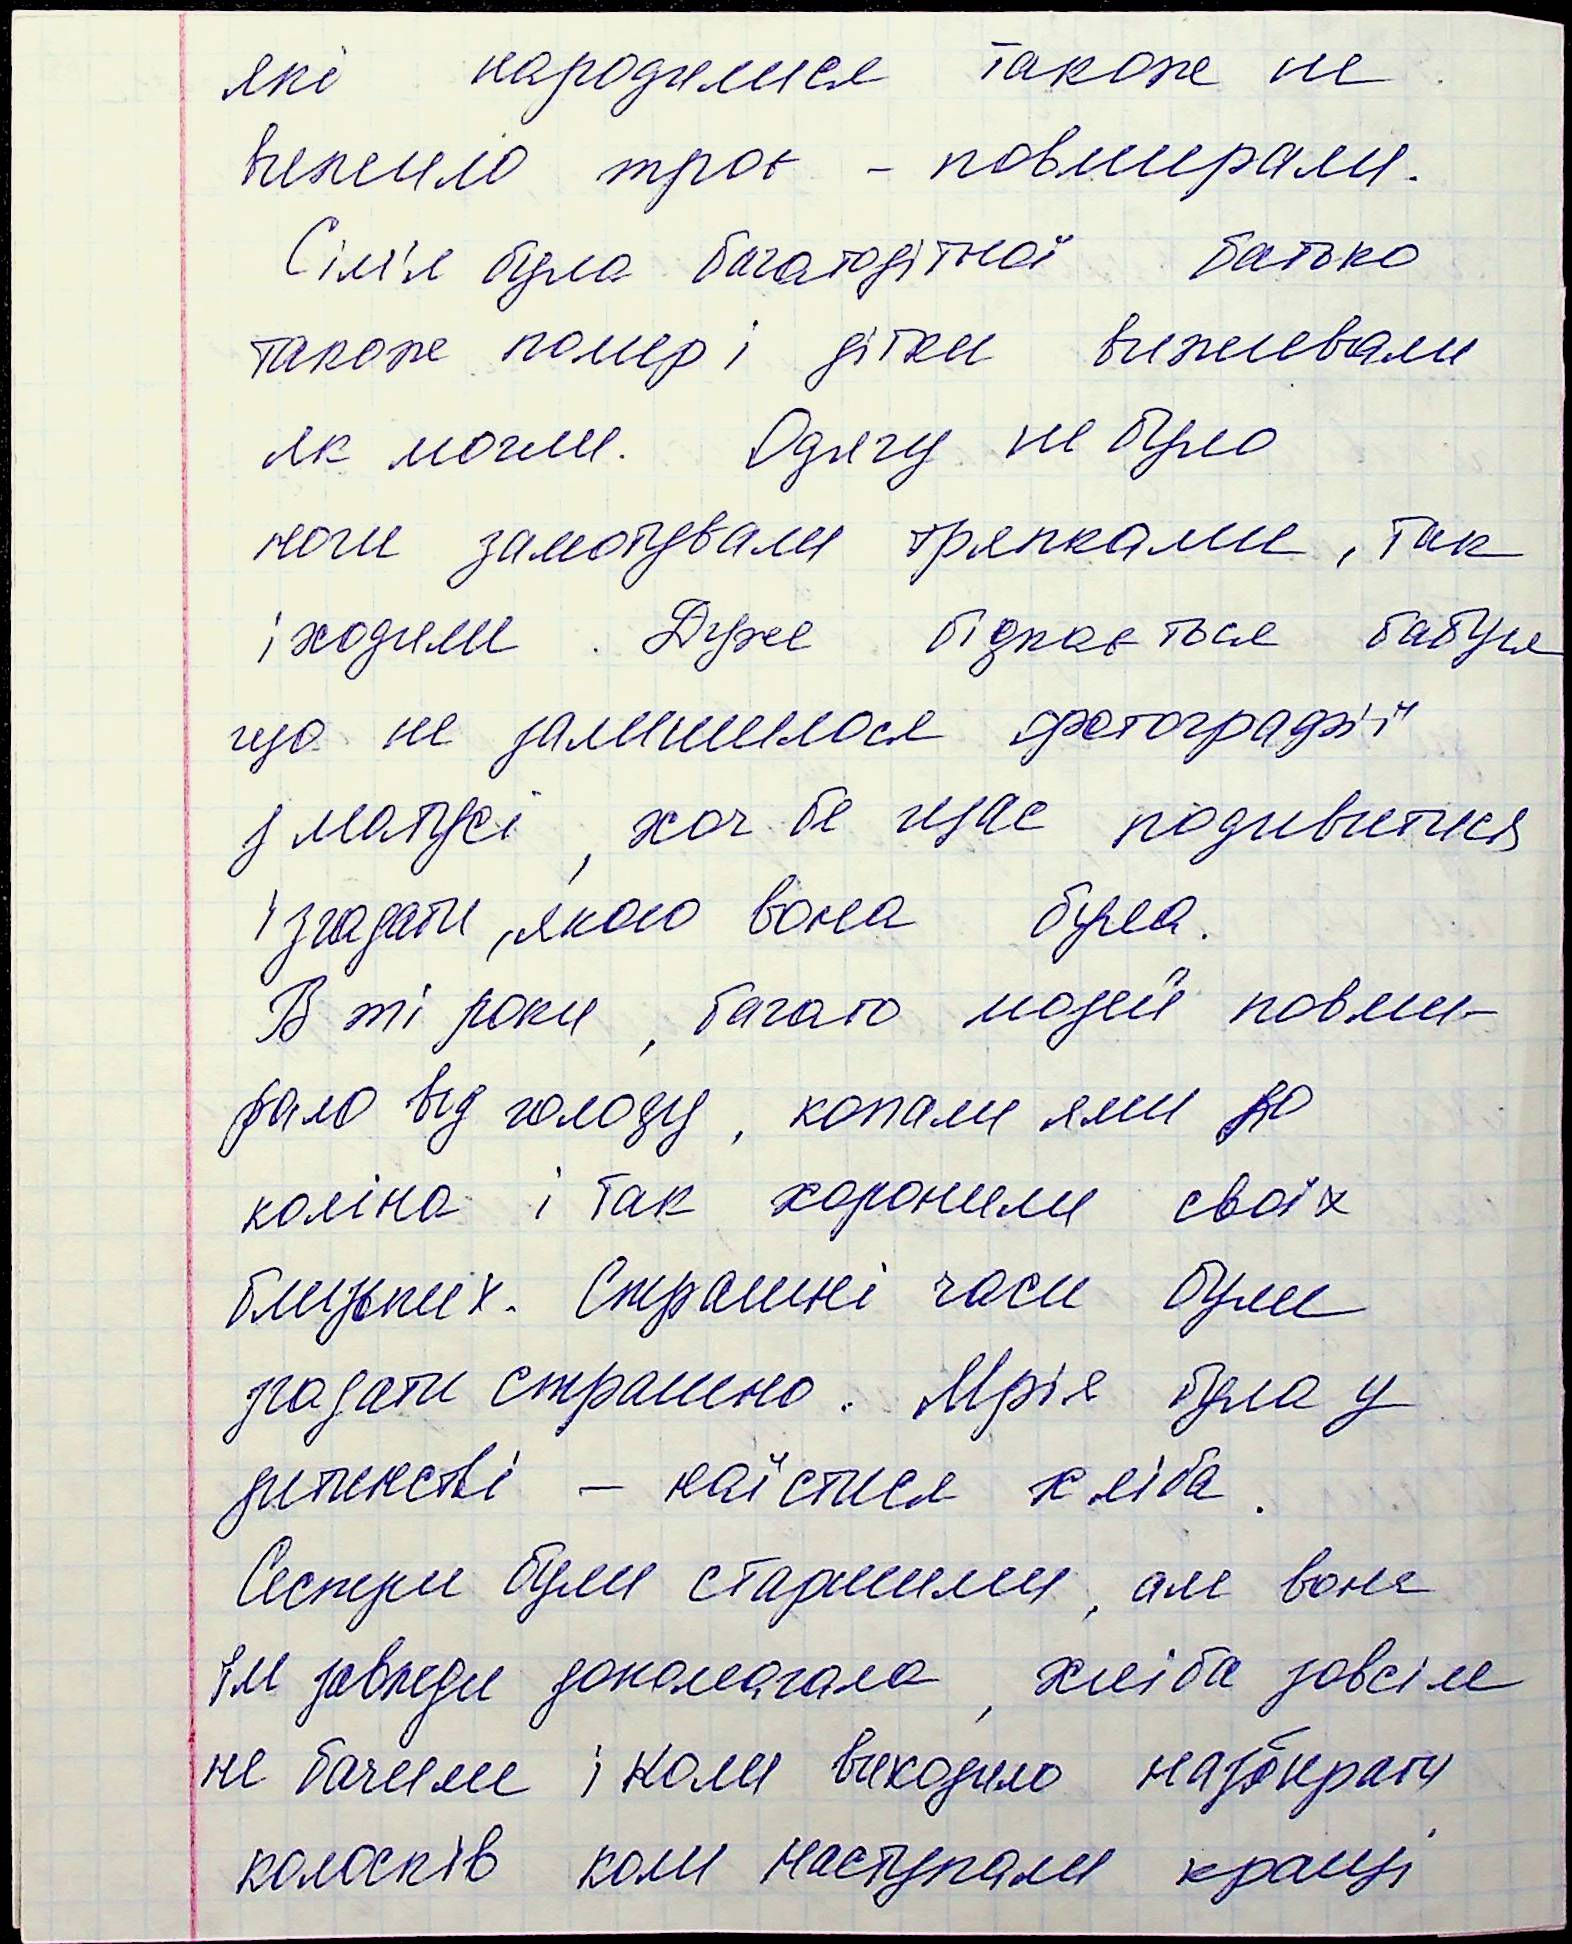 які народилися також не
вижило троє - повмирали.
Сім'я була багатодітної батько
також помер і дітки виживали
як могли. Одягу не було
ноги замотували тряпками, так
і ходили. Дуже бідкається бабуся
що не залишилося фотографії
з матусі, хоч би щас подивитися
і згадати, якою вона була.
В ті роки, багато людей повми-
рало від голоду, копали ями до
коліна і так хоронили своїх
близьких. Страшні часи були
згадати страшно. Мрія була у
дитинстві - наїстися хліба.
Сестри були старшими, але вона
їм завжди допомагала, хліба зовсім
не бачили і коли виходило назбирати
колосків коли наступали кращі